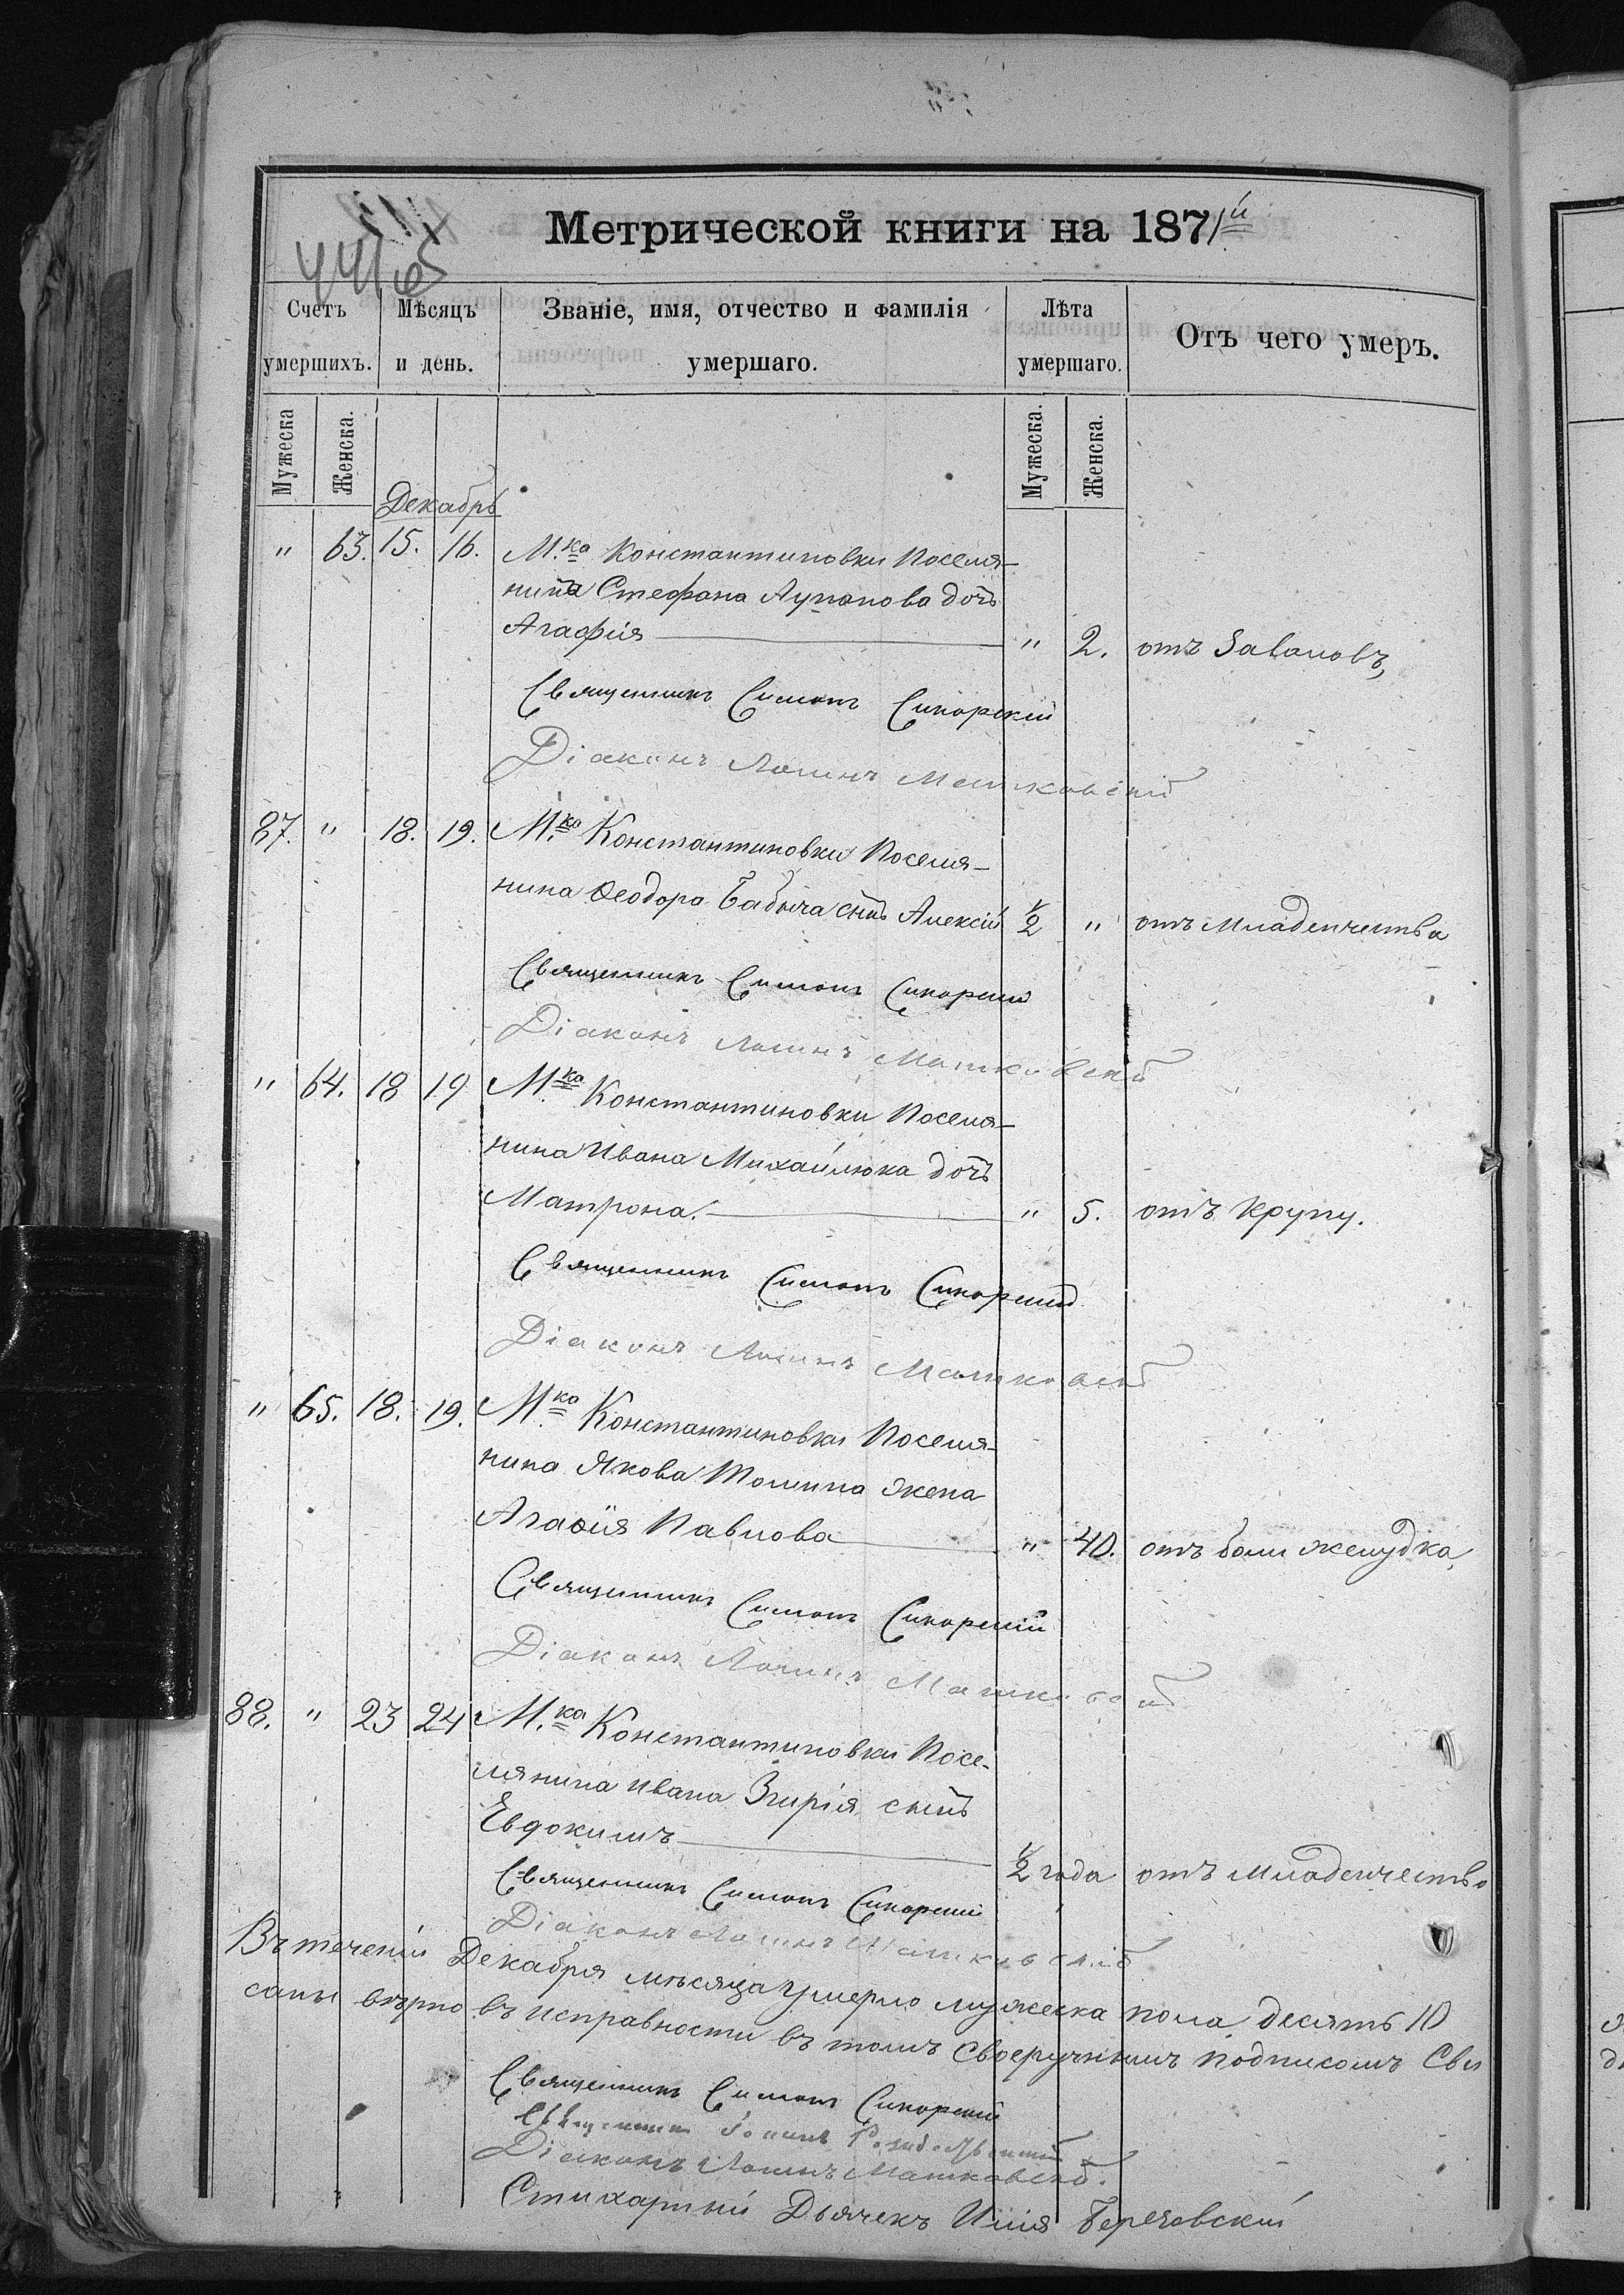 Метрической книги на 1871й
Счетъ умершихъ.
Мѣсяцъ и день.
Званіе, имя, отчество и фамилія умершаго.
Лѣта умершаго.
Отъ чего умеръ.
Мужеска
Женска.
Мужеска.
Женска.
Декабрь
" 63. 15. 16. М.ка Константиновки Поселя-
нина Стефана Лупанова дочь
Агафія " 2. отъ
Священникъ Симонъ Сикорскій
Діаконъ Лонинъ Машковскій
87. " 18. 19. М.ка Константиновки Поселя-
нина Ѳеодора Бабича сынъ Алексій ½ " отъ Младенчества
Священникъ Симонъ Сикорскій
Діаконъ Лонинъ Машковскій
" 64. 18 19 М.ка Константиновки Поселя-
нина Ивана Михайлюка дочь
Матрона. " 5. отъ Крупу.
Священникъ Симонъ Сикорскій
Діаконъ Лонинъ Машковскій
" 65. 18. 19. М.ка Константиновки Поселя-
нина Якова Томина жена
Агаѳія Павлова " 40. отъ боли желудка,
Священникъ Симонъ Сикорскій
Діаконъ Лонинъ Машковскій
88. " 23 24 М.ка Константиновки Посе-
лянина Ивана Згирія сынъ
Евдокимъ ½ года отъ Младенчества
Священникъ Симонъ Сикорскій
Діаконъ Лонинъ Машковскій
Въ теченіи Декабря мѣсяца умерло мужеска пола десять 10
саны вѣрно въ исправности въ томъ своеручнымъ подписомъ Сви
Священникъ Симонъ Сикорскій
Священникъ Іоаннъ
Діаконъ Лонинъ Машковскій.
Стихарный Дьячекъ Илія Березовскій